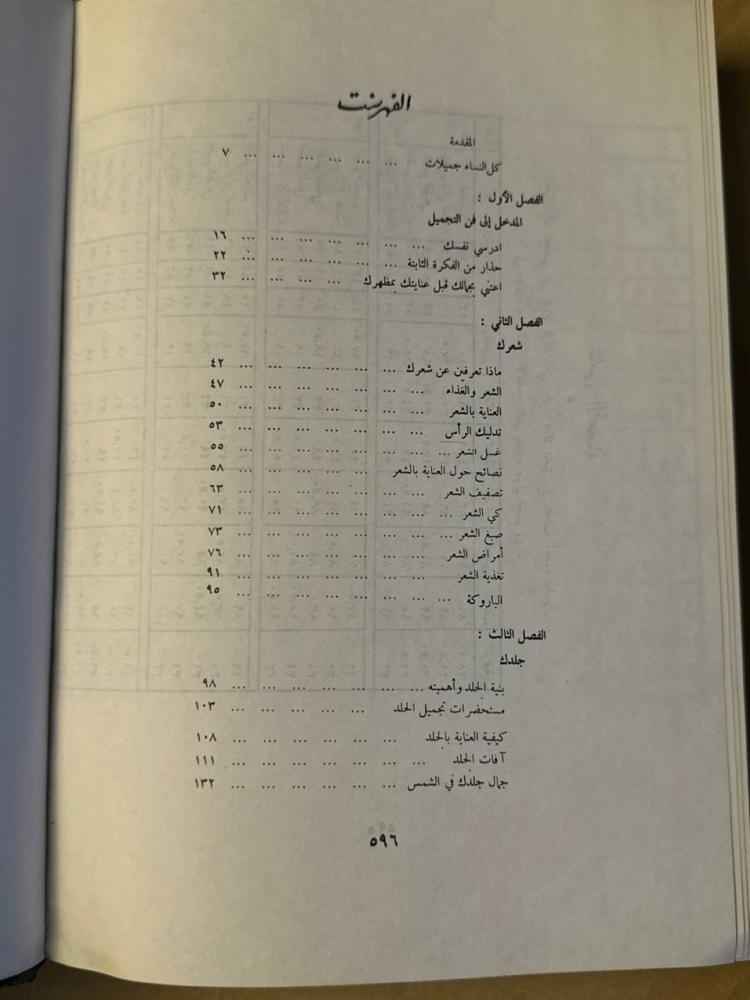 الفهرست
المقدمة
كل النساء جميلات ... ... ... ... ... ... ٧
الفصل الأول :
المدخل إلى فن التجميل
ادرسي نفسك ... ... ... ... ... ... ... ١٦
حذار من الفكرة الثابتة ... ... ... ... ... ... ٢٢
اعتني بجمالك قبل عنايتك بمظهرك ... ... ... ... ٣٢
الفصل الثاني :
شعرك
ماذا تعرفين عن شعرك ... ... ... ... ... ... ٤٢
الشعر والغذاء ... ... ... ... ... ... ... ٤٧
العناية بالشعر ... ... ... ... ... ... ... ٥٠
تدليك الرأس ... ... ... ... ... ... ... ٥٣
غسل الشعر ... ... ... ... ... ... ... ... ٥٥
نصائح حول العناية بالشعر ... ... ... ... ... ٥٨
تصفيف الشعر ... ... ... ... ... ... ... ٦٣
كي الشعر ... ... ... ... ... ... ... ... ٧١
صبغ الشعر ... ... ... ... ... ... ... ... ٧٣
أمراض الشعر ... ... ... ... ... ... ... ٧٦
تغذية الشعر ... ... ... ... ... ... ... ٩١
الباروكة ... ... ... ... ... ... ... ... ٩٥
الفصل الثالث :
جلدك
بنية الجلد وأهميته ... ... ... ... ... ... ... ٩٨
مستحضرات تجميل الجلد ... ... ... ... ... ١٠٣
كيفية العناية بالجلد ... ... ... ... ... ... ... ١٠٨
آفات الجلد ... ... ... ... ... ... ... ١١١
جمال جلدك في الشمس ... ... ... ... ... ... ١٣٢
٥٩٦